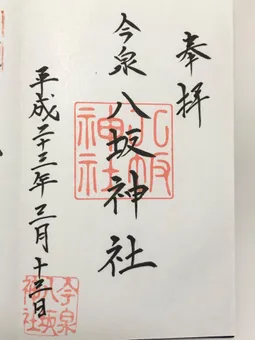 奉拝
今泉 八坂神社
八坂神社
平成二十三年三月十二日
今泉八坂神社